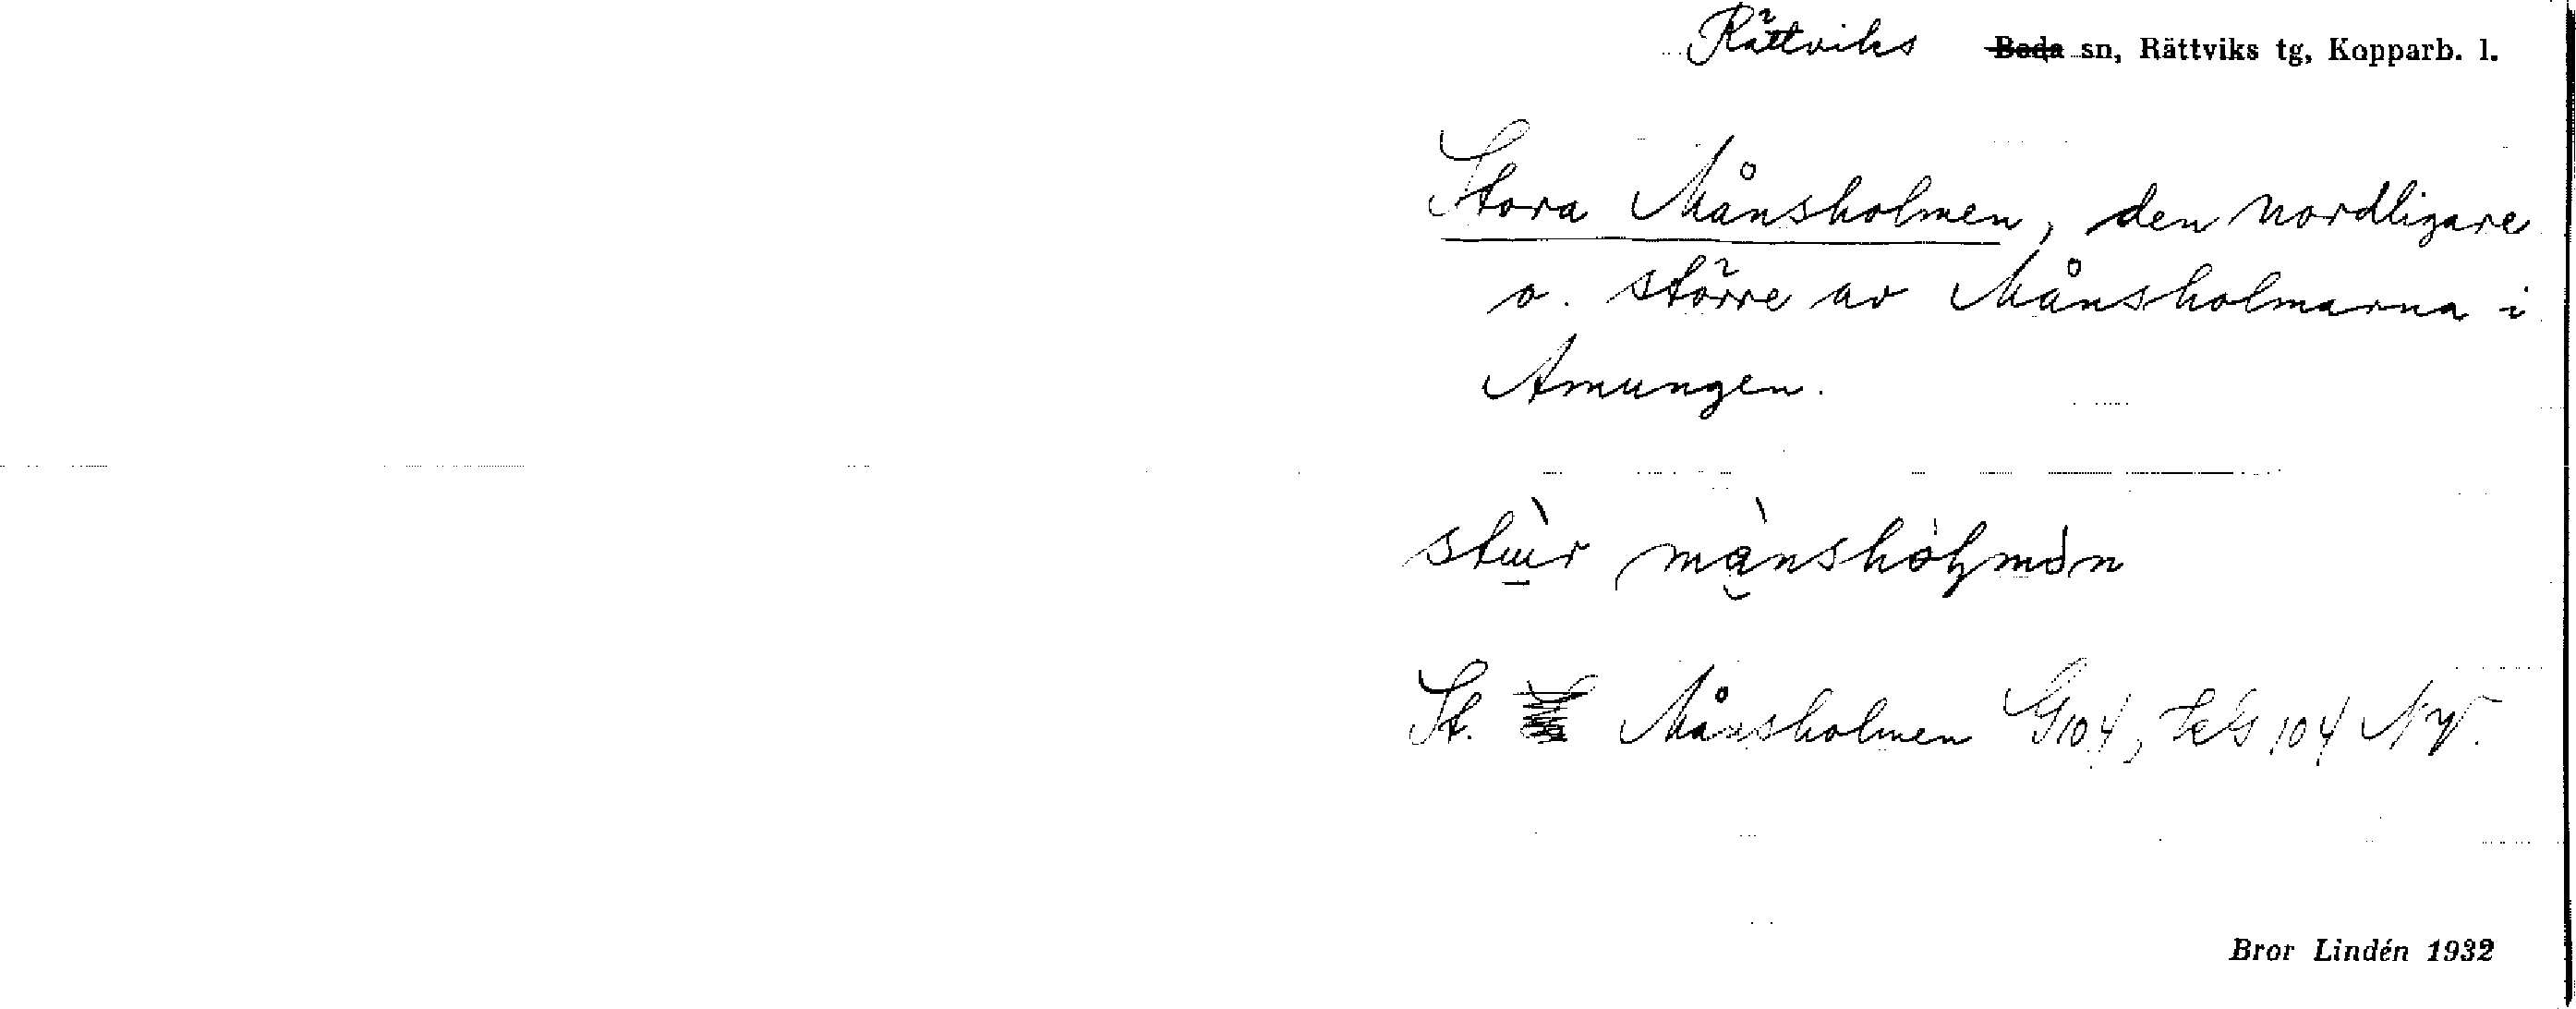 Rättviks Boda sn, Rättviks tg, Kopparb. l.
Stora Månsholmen, den nordligare
o. större av Månsholmarna i
Amungen.
St. Månsholmen G104, 104 NV.
Bror Lindén 1932